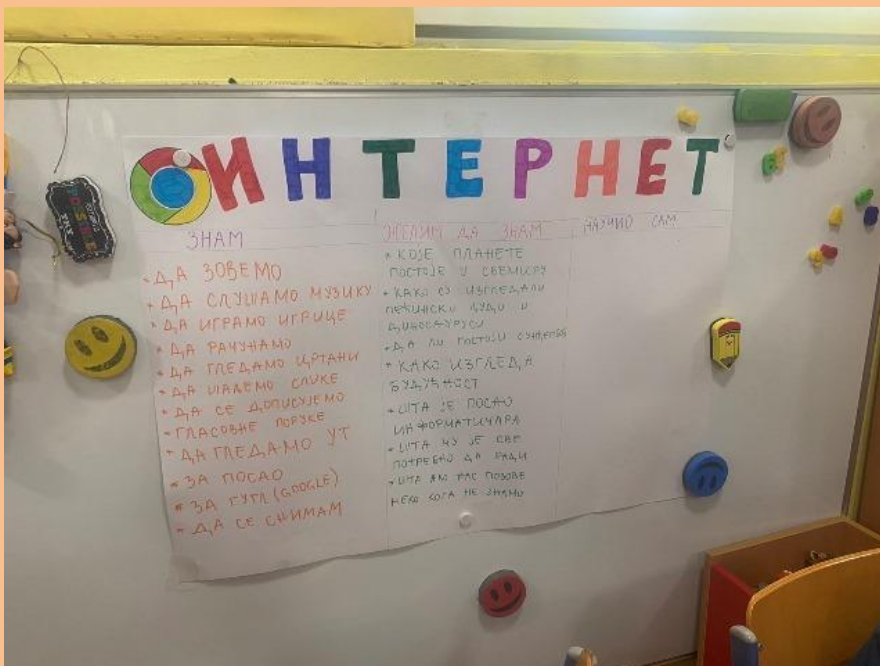 ИНТЕРНЕТ
ЗНАМ
• ДА ЗОВЕМО
• ДА СЛУШАМО МУЗИКУ
• ДА ИГРАМО ИГРИЦЕ
• ДА РАЧУНАМО
• ДА ГЛЕДАМО ЦРТАНИ
• ДА ШАЉЕМО СЛИКЕ
• ДА СЕ ДОПИСУЈЕМО
• ГЛАСОВНЕ ПОРУКЕ
• ДА ГЛЕДАМО YT
• ЗА ПОСАО
• ЗА ГУГЛ (GOOGLE)
• ДА СЕ СНИМАМ
ЖЕЛИМ ДА ЗНАМ
• КОЈЕ ПЛАНЕТЕ
ПОСТОЈЕ У СВЕМИРУ
• КАКО СУ ИЗГЛЕДАЛИ
ПЕЋИНСКИ ЉУДИ И
ДИНОСАУРУСИ
• ДА ЛИ ПОСТОЈИ
• КАКО ИЗГЛЕДА
БУДУЋНОСТ
• ШТА ЈЕ ПОСАО
ИНФОРМАТИЧАРА
• ШТА МУ ЈЕ СВЕ
ПОТРЕБНО ДА РАДИ
• ШТА АКО НАС ПОЗОВЕ
НЕКО КОГА НЕ ЗНАМО
НАУЧИО САМ